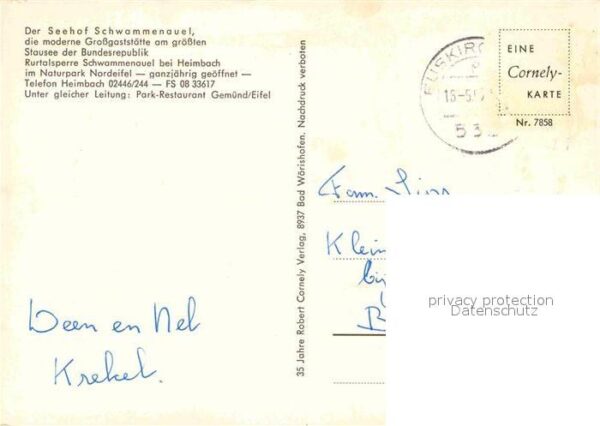 Der Seehof Schwammenauel,
die moderne Großgaststätte am größten
Stausee der Bundesrepublik
Rurtalsperre Schwammenauel bei Heimbach
im Naturpark Nordeifel — ganzjährig geöffnet —
Telefon Heimbach 02446/244 — FS 08 33617
Unter gleicher Leitung: Park-Restaurant Gemünd/Eifel
Ween en Nel
Krekel.
35 Jahre Robert Cornely Verlag, 8937 Bad Wörishofen. Nachdruck verboten
EUSKIRC
15.-5.
532
EINE
Cornely-
KARTE
Nr. 7858
Fam.
Klein
privacy protection
Datenschutz